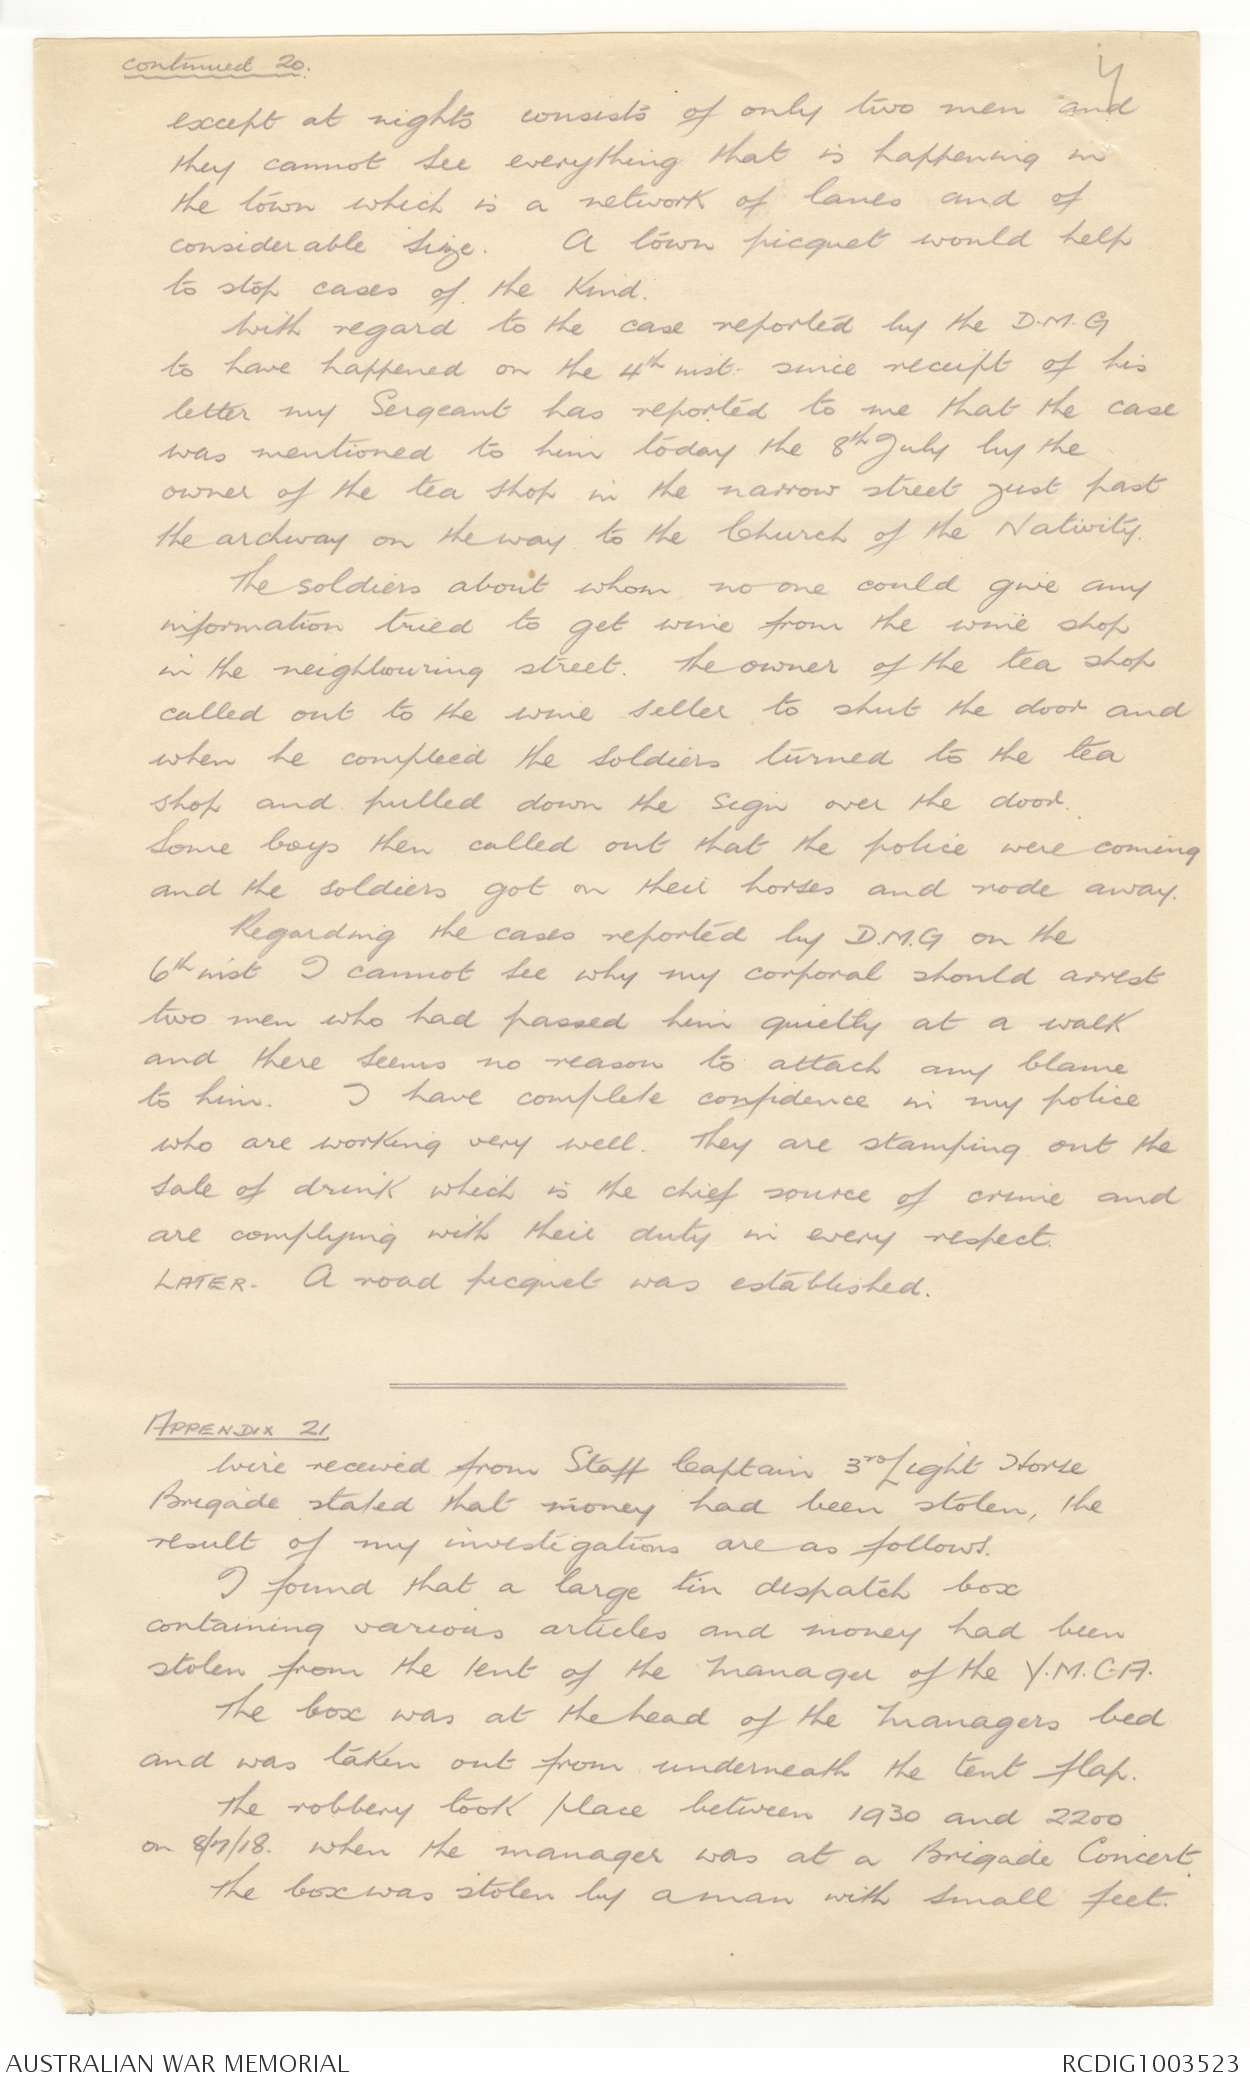 continued 20.
4
except at nights consists of only two men and
they cannot see everything that is happening in
the town which is a network of lanes and of
considerable size. A town picquet would help
to stop cases of the kind.
With regard to the case reported by the D.M.G
to have happened on the 4th inst. since receipt of his
letter my Sergeant has reported to me that the case
was mentioned to him today the 8th July by the
owner of the tea shop in the narrow street just past
the archway on the way to the Church of the Nativity.
The soldiers about whom no one could give any
information tried to get wine from the wine shop
in the neighbouring street. The owner of the tea shop
called out to the wine seller to shut the door and
when he complied the soldiers turned to the tea
shop and pulled down the sign over the door.
Some boys then called out that the police were coming
and the soldiers got on their horses and rode away.
Regarding the cases reported by D.M.G on the
6th inst I cannot see why my corporal should arrest
two men who had passed him quietly at a walk
and there seems no reason to attach any blame
to him. I have complete confidence in my police
who are working very well. They are stamping out the
sale of drink which is the chief source of crime and
are complying with their duty in every respect.
LATER. A road picquet was established.
APPENDIX 21
Wire received from Staff Captain 3rd Light Horse
Brigade stated that money had been stolen, the
result of my investigations are as follows.
I found that a large tin despatch box
containing various articles and money had been
stolen from the tent of the manager of the Y.M.C.A.
The box was at the head of the managers bed
and was taken out from underneath the tent flap.
The robbery took place between 1930 and 2200
on 8/7/18. when the manager was at a Brigade Concert.
The box was stolen by a man with small feet.
AUSTRALIAN WAR MEMORIAL
RCDIG1003523